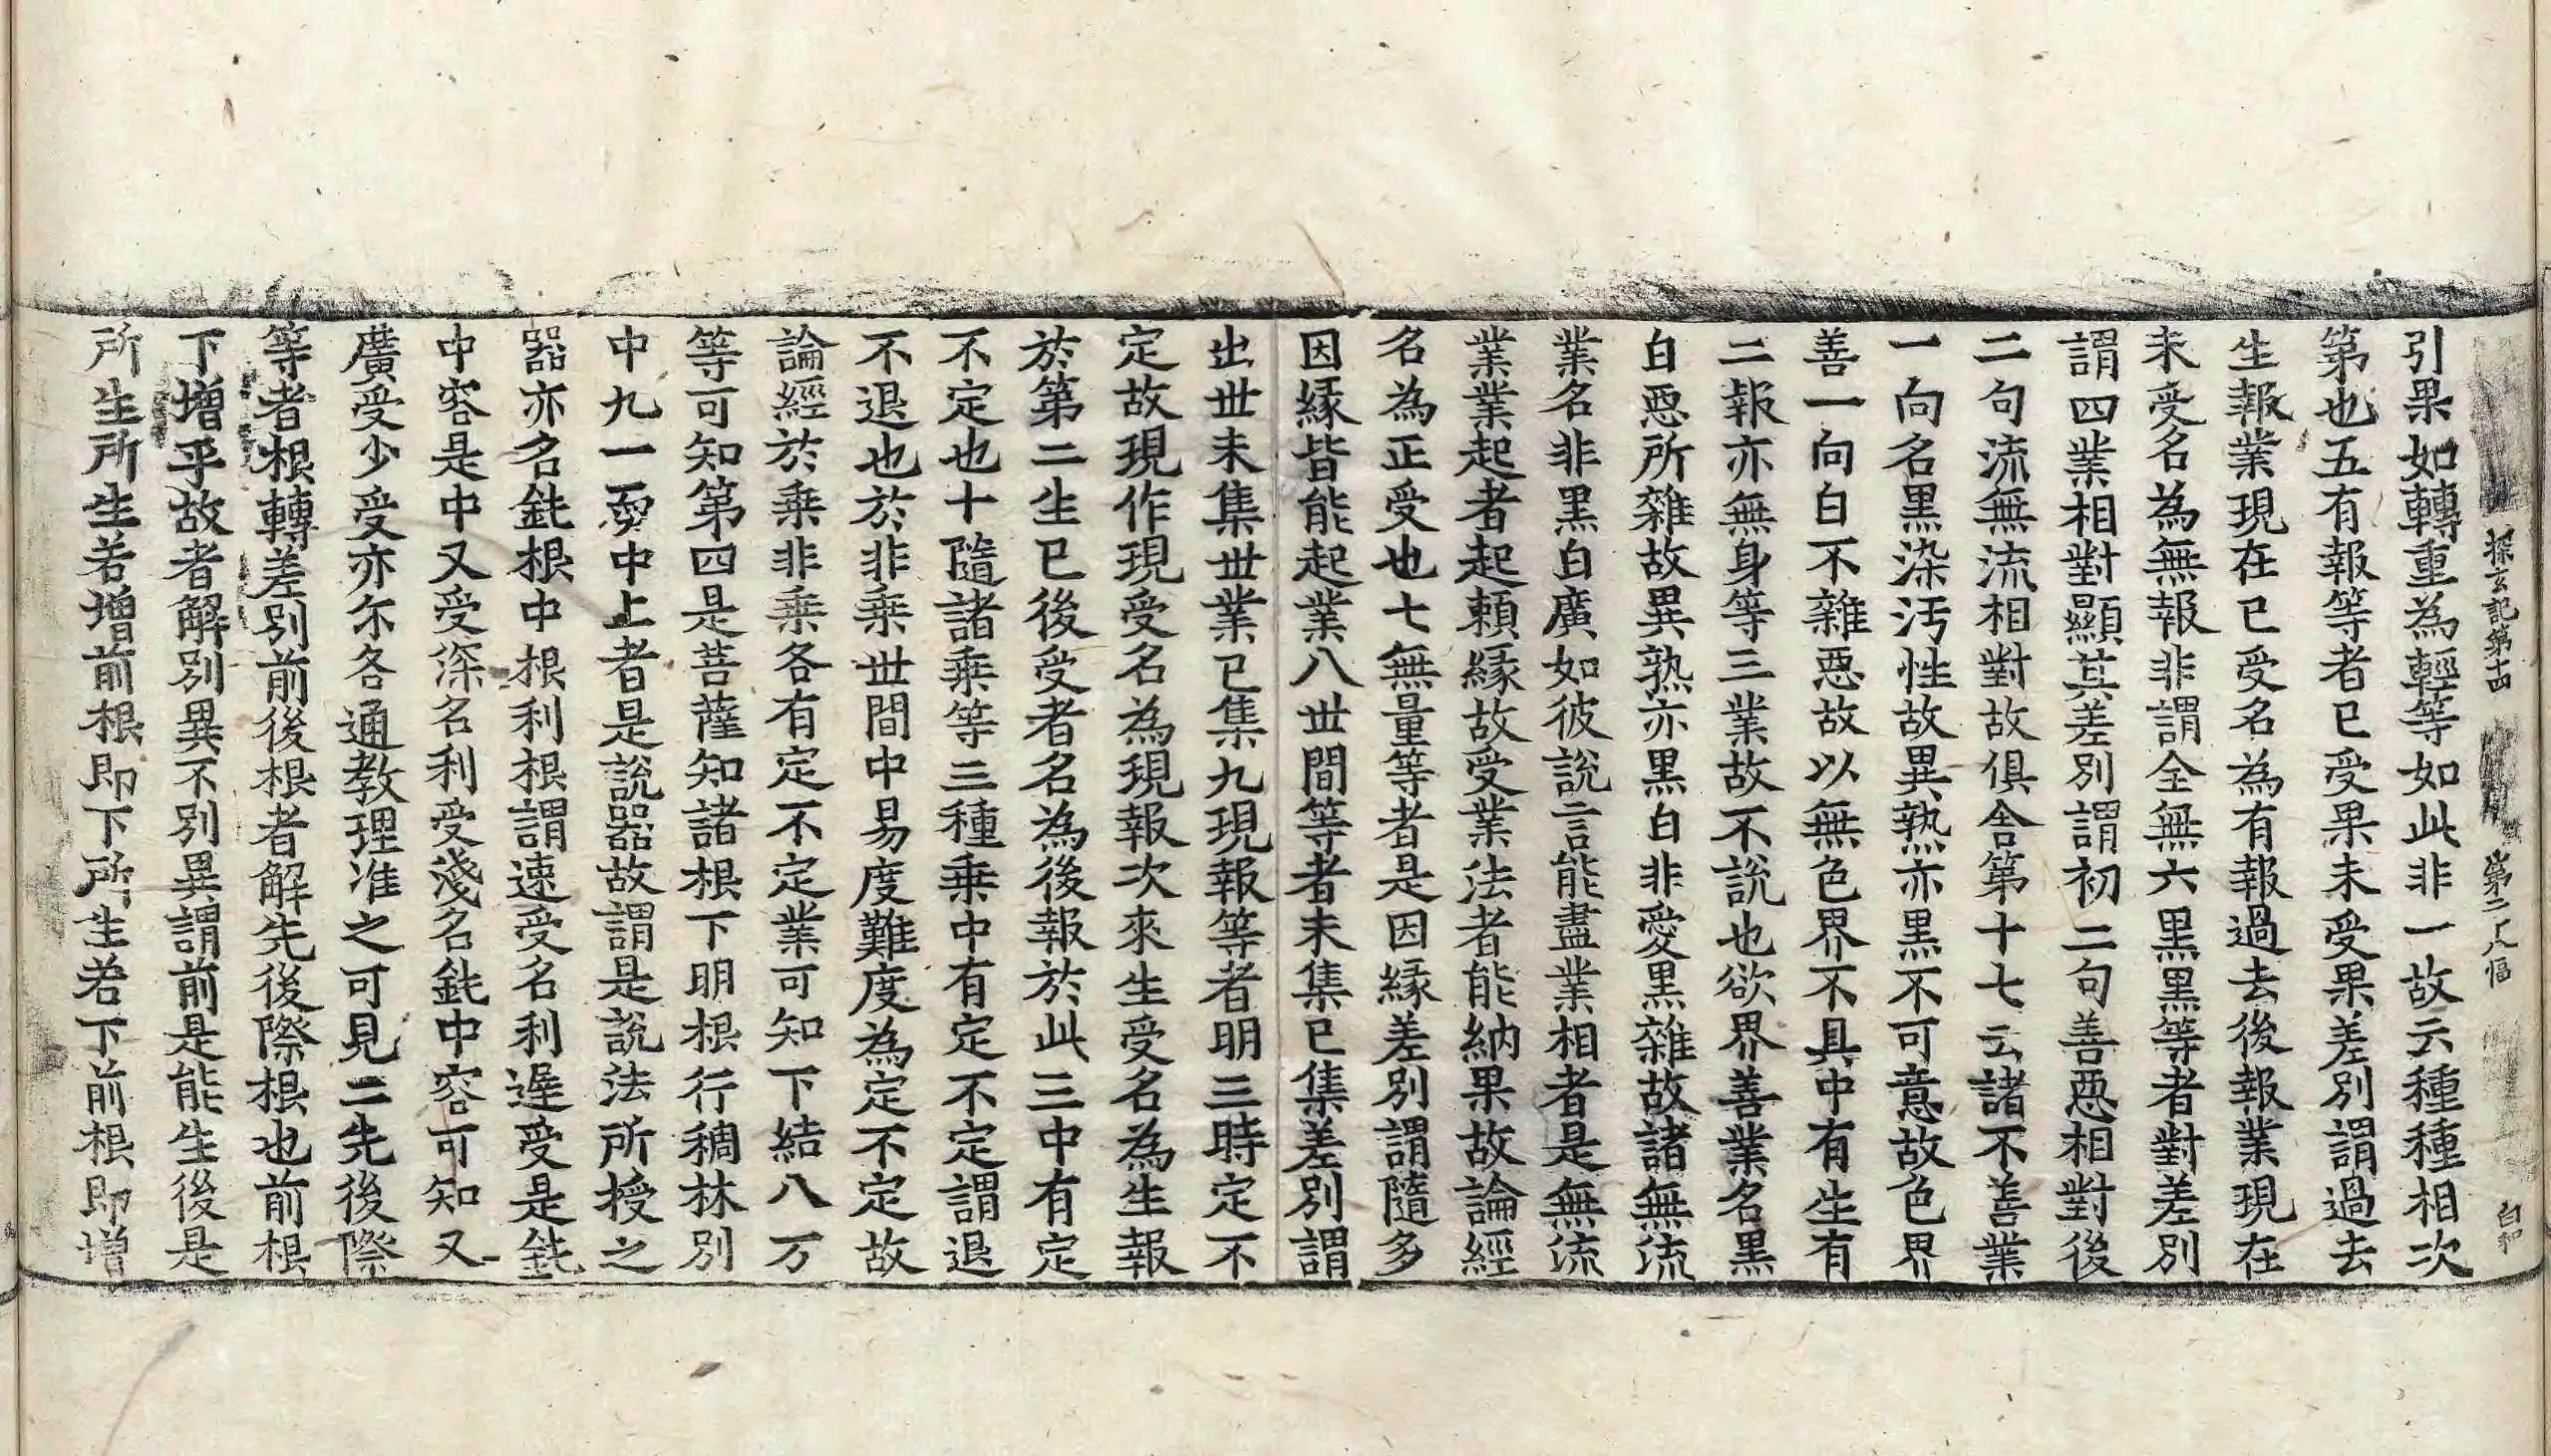 探玄記第十四 第二八幅
引果如轉重為輕等如此非一故云種種相次
第也五有報等者已受果未受果差別謂過去
生報業現在已受名為有報過去後報業現在
未受名為無報非謂全無六黑黑等者對差別
謂四業相對顯其差別謂初二句善惡相對後
二句流無流相對故俱舍第十七云諸不善業
一向名黑染汚性故異熟亦黑不可意故色界
善一向白不雜惡故以無色界不具中有生有
二報亦無身等三業故不說也欲界善業名黑
白惡所雜故異熟亦黑白非愛黑雜故諸無流
業名非黑白廣如彼說言能盡業相者是無流
業業起者起頼緣故受業法者能納果故論經
名為正受也七無量等者是因緣差別謂隨多
因緣皆能起業八世間等者未集已集差別謂
出世未集世業已集九現報等者明三時定不
定故現作現受名為現報次來生受名為生報
於第二生已後受者名為後報於此三中有定
不定也十隨諸乘等三種乘中有定不定謂退
不退也於非乘世間中易度難度為定不定故
論經於乘非乘各有定不定業可知下結八万
等可知第四是菩薩知諸根下明根行稠林別
中九一耎中上者是說器故謂是說法所授之
器亦名鈍根中根利根謂速受名利遲受是鈍
中容是中又受深名利受淺名鈍中容可知又
廣受少受亦尓各通教理准之可見二先後際
等者根轉差別前後根者解先後際根也前根
下增乎故者解別異不別異謂前是能生後是
所生所生若增前根即下所生若下前根即增